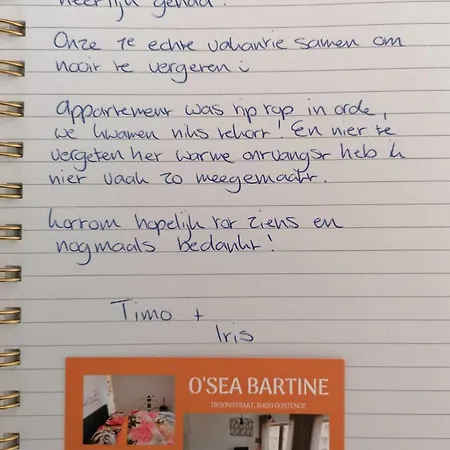 heerlijk gehad!
Onze 1e echte vakantie samen om
nooit te vergeten
Appartement was tip top in orde,
we kwamen niks tekort! En niet te
vergeten het warme ontvangst heb ik
niet vaak zo meegemaakt.
kortom hopelijk tot ziens en
nogmaals bedankt!
Timo +
Iris
O'SEA BARTINE
TROONSTRAAT, 8400 OOSTENDE